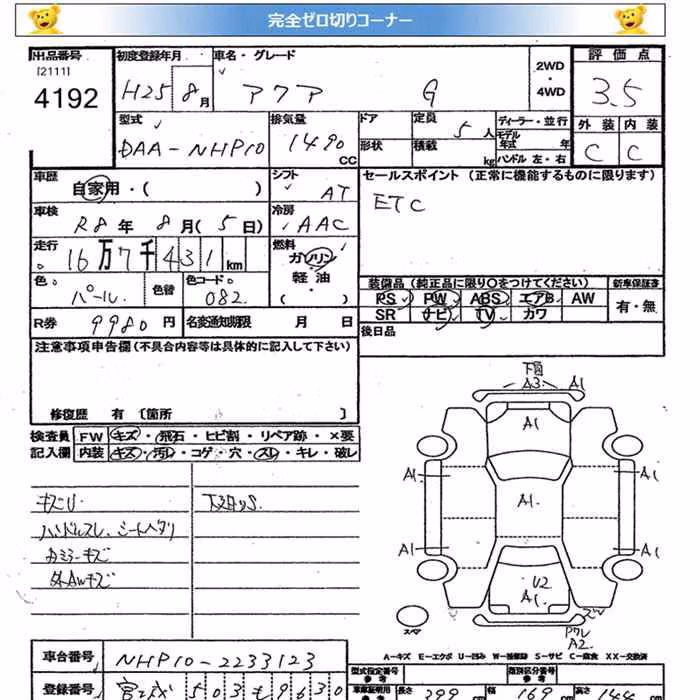 完全ゼロ切りコーナー
出品番号 初度登録年月 車名・グレード 2WD・4WD 評価点
[2111]
4192 H25 8月 アクア G 3.5
型式 排気量 ドア 定員 5人 ディーラー・並行 外装 内装
DAA-NHP10 1490 CC 形状 積載 kg モデル年式 年 C C
ハンドル左・右
車歴 シフト セールスポイント (正常に機能するものに限ります)
自家用・( ) AT ETC
車検 冷房
R8年 8月( 5日) AAC
走行 燃料
16万7千431km ガソリン
軽油
・( )
色 色替 色コード
パール 082
装備品 (純正品に限り○をつけてください) 新車保証書
PS PW ABS エアB AW 有・無
SR ナビ TV カワ
R券 9980円 名変通知期限 月 日 後日品
注意事項申告欄 (不具合内容等は具体的に記入して下さい)
修復歴 有 〔箇所 〕
検査員 FW キズ・飛石・ヒビ割・リペア跡・×要
記入欄 内装 キズ・汚レ・コゲ・穴・スレ・キレ・破レ
キズU 下廻りS
ハンドルスレ シートヘタリ
カミラーキズ
外AWキズ
下廻
A3 A1
A1
A1 A1
A1
A1 A1
U2
A1
スペア
A2
A-キズ E-エクボ U-凹み W-補修跡 S-サビ C-腐食 XX-交換済
車台番号 NHP10-2233123
型式指定番号 類別区分番号
登録番号 宮城 503 も 9630
車庫証明用参考 長さ 399 cm 幅 169 cm 高さ 144 cm